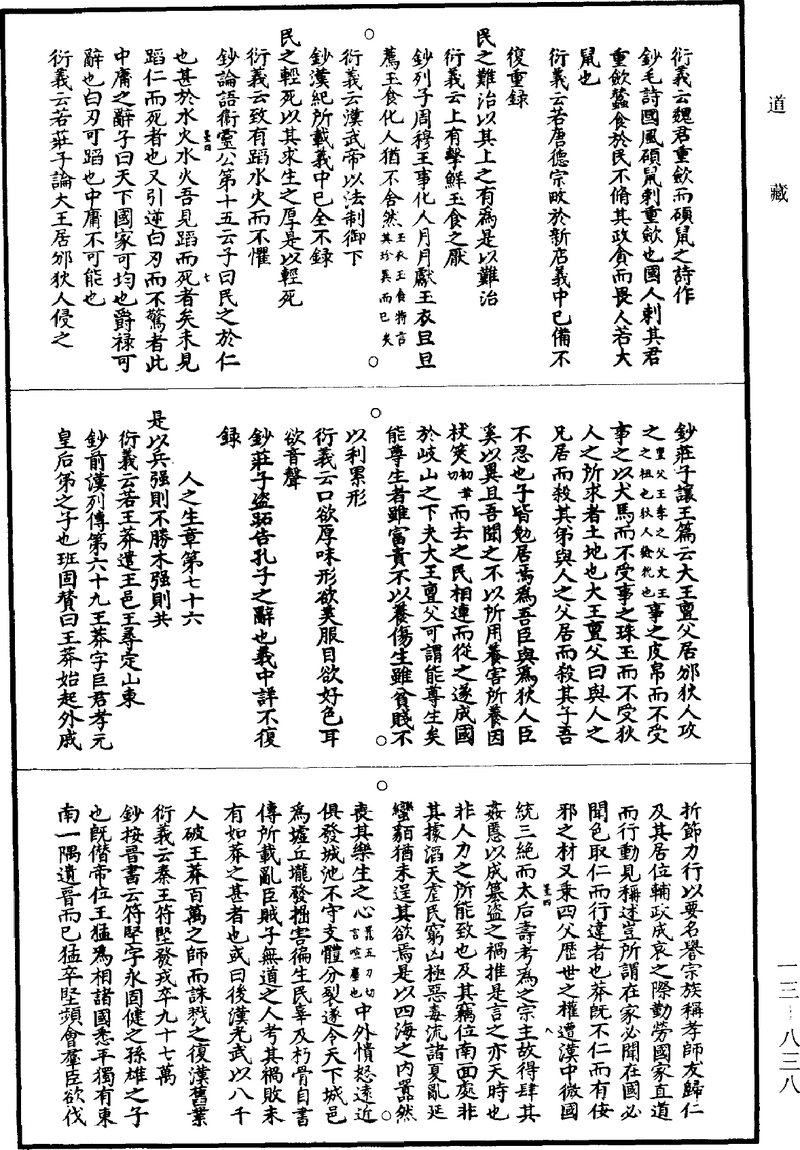 道藏
衍義云魏君重斂而碩鼠之詩作
鈔毛詩國風碩鼠刺重斂也國人刺其君
重斂蠶食於民不脩其政貪而畏人若大
鼠也
衍義云若唐德宗畋於新店義中已備不
復重録
民之難治以其上之有為是以難治
衍義云上有擊鮮玉食之厭
鈔列子周穆王事化人月月獻玉衣旦旦
薦玉食化人猶不舍然玉衣玉食特言其珍異而已矣
衍義云漢武帝以法制御下
鈔漢紀所載義中已全不録
民之輕死以其求生之厚是以輕死
衍義云致有蹈水火而不懼
鈔論語衛靈公第十五云子曰民之於仁
也甚於水火水火吾見蹈而死者矣未見
蹈仁而死者也又引逆白刃而不驚者此
中庸之辭子曰天下國家可均也爵禄可
辭也白刃可蹈也中庸不可能也
衍義云若莊子論大王居邠狄人侵之
鈔莊子讓王篇云大王亶父居邠狄人攻
之亶父王季之父文王之祖也狄人獫狁也事之皮帛而不受
事之以犬馬而不受事之珠玉而不受狄
人之所求者土地也大王亶父曰與人之
兄居而殺其弟與人之父居而殺其子吾
不忍也子皆勉居焉為吾臣與為狄人臣
奚以異且吾聞之不以所用養害所養因
杖筴初革切而去之民相連而從之遂成國
於岐山之下夫大王亶父可謂能尊生矣
能尊生者雖富貴不以養傷生雖貧賤不
以利累形
衍義云口欲厚味形欲美服目欲好色耳
欲音聲
鈔莊子盜跖告孔子之辭也義中詳不復
録
人之生章第七十六
是以兵强則不勝木强則共
衍義云若王莽遣王邑王尋定山東
鈔前漢列傳第六十九王莽字巨君孝元
皇后弟之子也班固贊曰王莽始起外戚
折節力行以要名譽宗族稱孝師友歸仁
及其居位輔政成哀之際勤勞國家直道
而行動見稱述豈所謂在家必聞在國必
聞色取仁而行違者也莽既不仁而有佞
邪之材又乘四父歷世之權遭漢中微國
統三絕而太后壽考為之宗主故得肆其
姦慝以成篡盜之禍推是言之亦天時也
非人力之所能致也及其竊位南面處非
其據滔天虐民窮凶極惡毒流諸夏亂延
蠻貊猶未逞其欲焉是以四海之内囂然
喪其樂生之心囂五刀切言喧囂也中外憤怒遠近
俱發城池不守支體分裂遂令天下城邑
為墟丘壠發掘害徧生民辜及朽骨自書
傳所載亂臣賊子無道之人考其禍敗未
有如莽之甚者也或曰後漢光武以八千
人破王莽百萬之師而誅戮之復漢舊業
衍義云秦王符堅發戎卒九十七萬
鈔按晉書云符堅字永固健之孫雄之子
也既僭帝位王猛為相諸國悉平獨有東
南一隅遺晉而已猛卒堅頻會羣臣欲伐
一三-八三八